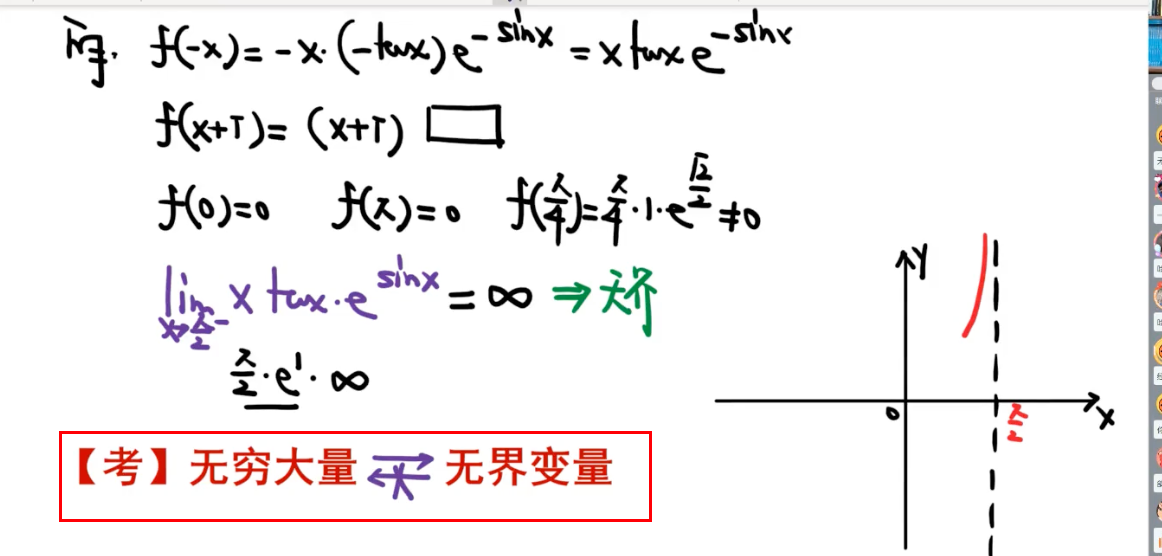 解. f(-x)=-x·(-tanx)e^{-sinx}=xtanxe^{-sinx}
f(x+T)=(x+T)
f(0)=0 f(π)=0 f(π/4)=π/4·1·e^{√2/2}≠0
lim x→π/2⁻ x tanx·e^{sinx}=∞⇒无界
π/2·e¹·∞
Y
0
π/2
X
【考】无穷大量⇄无界变量